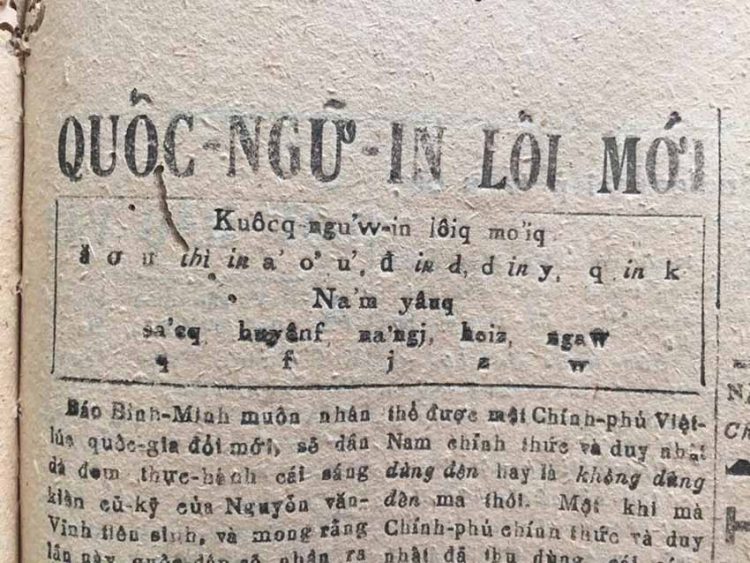 QUỐC-NGỮ-IN LỐI MỚI
Kuôcq-ngu'w-in lôiq mo'iq
ă ơ ư thì in a' o' u', đ in d, d in y, q in k
Na'm yâuq
sa'cq huyênf na'ngj, hoiz, ngaw
q f j z w
Báo Bình-Minh muốn nhân
lúc quốc-gia đổi mới, sẽ dần
dà đem thực-hành cái sáng
kiến cũ-kỹ của Nguyễn văn-
Vĩnh tiên sinh, và mong rằng
lần này quốc dân sẽ nhận ra
thể được một Chính-phủ Việt-
Nam chính thức và duy nhất
dùng đến hay là không dùng
đến mà thôi. Một khi mà
Chính-phủ chính thức và duy
nhất đã thu dùng cái